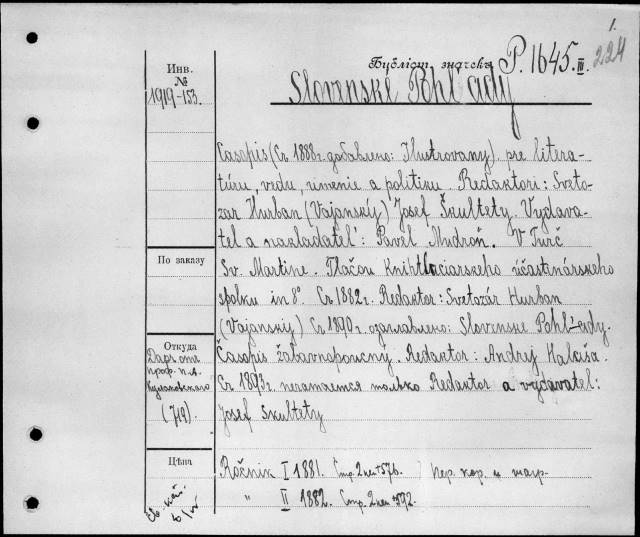 1.
224
Бубліот. значекъ P. 1645. III.
Инв.
N.
1919-153.
Slovenské Pohl'ady
Casopis (Съ 1888 г. добавлено: Ilustrovany). pre litera-
túru, vedu, umenie a politiku. Redaktori: Sveto-
zar Hurban (Vajanský) Josef Škultety. Vydava-
tel a nakladatel': Pavel Mudroň. V Turč
Sv. Martine. Tlačou Kníhtlaciarskeho účastinárskeho
spolku in 8°. Съ 1882 г. Redaktor: Svetozár Hurban
(Vajanskij) Съ 1890 г. озаглавлено: Slovenske Pohl'ady.
Časopis žabavnopoucny. Redaktor: Andrej Halaša.
Съ 1893 г. печатается только Redaktor a vydavatel:
Josef Skultety
По заказу
Откуда
Даръ отъ
проф. П.А.
Кулаковскаго
(719).
Цѣна
Ročník I 1881. Стр. 2 нен + 576.
" II 1882. Стр. 2 нен + 592.
пер. кор. и